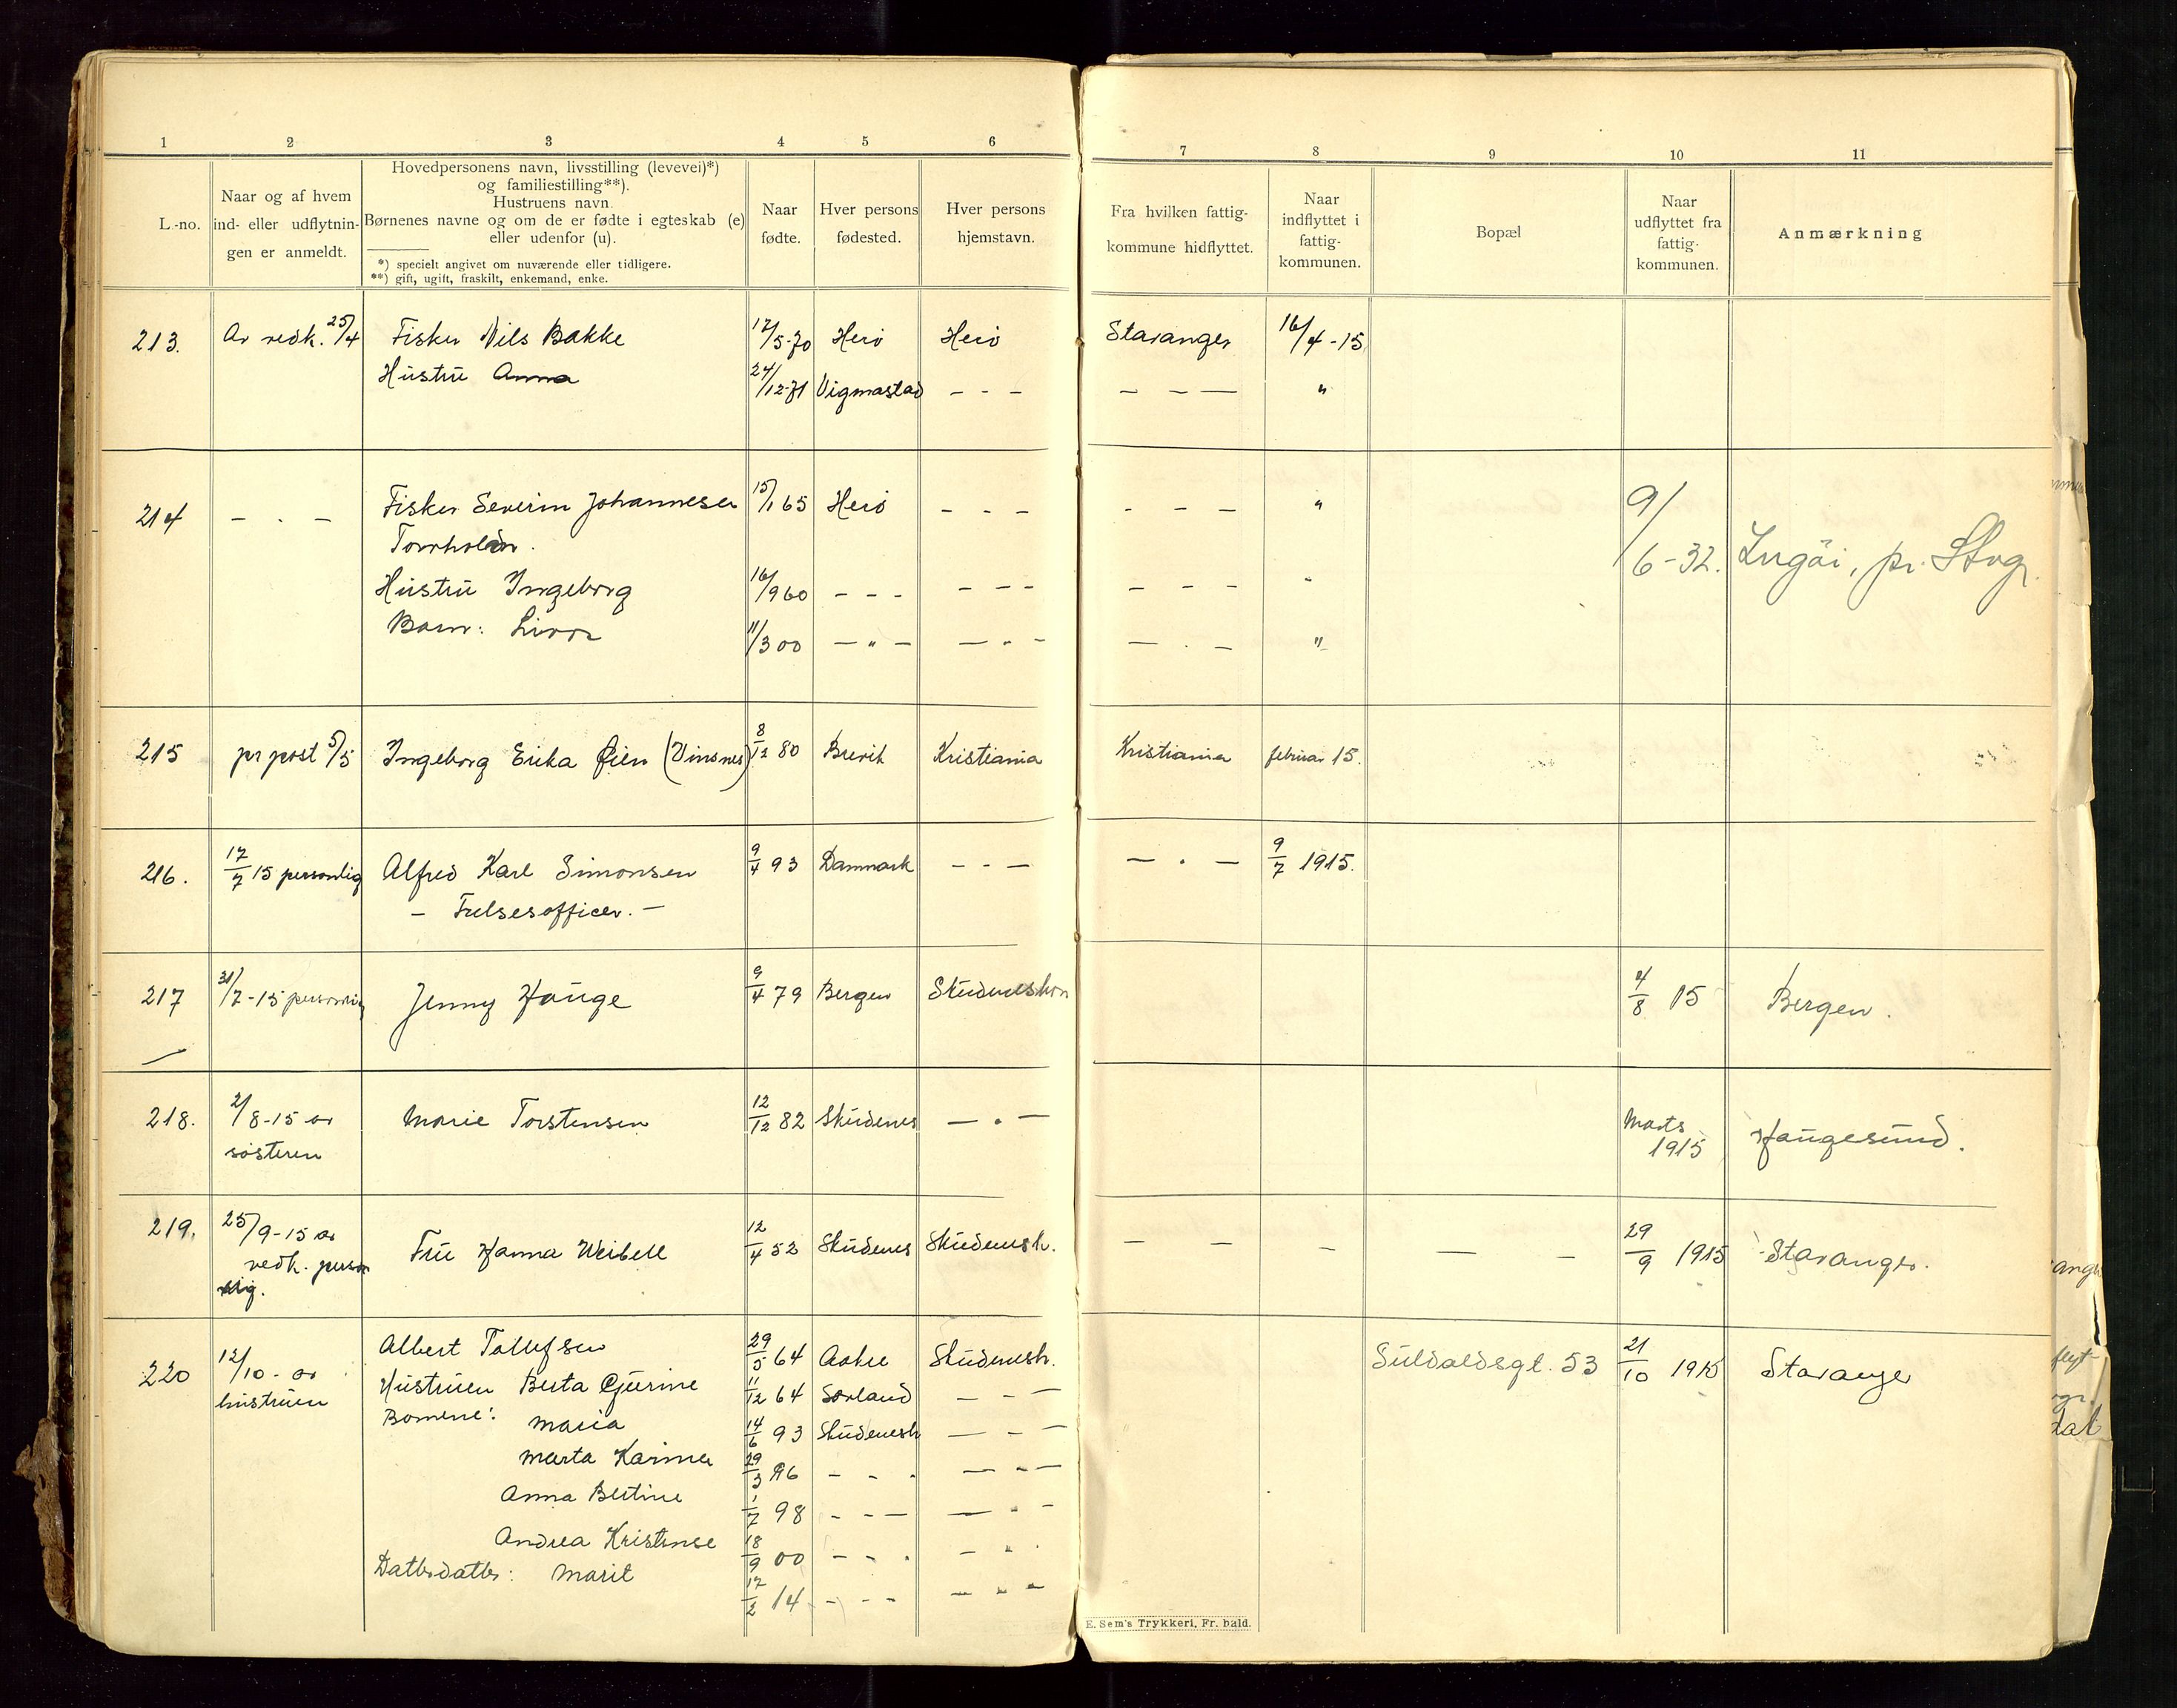 1 2 3 4 5 6 7 8 9 10 11
L.-no.
Naar og af hvem
ind- eller udflytnin-
gen er anmeldt.
Hovedpersonens navn, livsstilling (levevei)*)
og familiestilling**).
Hustruens navn.
Børnenes navne og om de er fødte i egteskab (e)
eller udenfor (u).
*) specielt angivet om nuværende eller tidligere.
**) gift, ugift, fraskilt, enkemand, enke.
Naar
fødte.
Hver persons
fødested.
Hver persons
hjemstavn.
Fra hvilken fattig-
kommune hidflyttet.
Naar
indflyttet i
fattig-
kommunen.
Bopæl
Naar
udflyttet fra
fattig-
kommunen.
Anmærkning
213. Av vedk. 25/4 Fisker Nils Bakke 17/5-70 Herö Herö Stavanger 16/4-15
Hustru Anna 24/12-71 Vigmostad - - - - - - "
214 - . - Fisker Severin Johannesen 15/1 65 Herö - - - - - - " 9/6-32. pr. Stvgr.
Hustru Ingeborg 16/9 60 - - - - - - - - - "
Barn: 11/3 00 - " - - " - - . - "
215 pr post 5/5 Ingeborg Erika Øien (Vinsnes) 8/12 80 Brevik Kristiania Kristiania februar 15.
216. 17/7 15 personlig Alfred Karl Simonsen 9/4 93 Danmark - - - - . - 9/7 1915.
- Frelsesofficer. -
217 31/7-15 personlig Jenny Hauge 9/4 79 Bergen Skudeneshvn 4/8 15 Bergen.
218. 2/8-15 av Marie Torstensen 12/12 82 Skudenes - . - Marts 1915 Haugesund.
søsteren
219. 25/9-15 av Fru Hanna Weibell 12/4 52 Skudenes Skudenesh. - - - - - 29/9 1915 Stavanger.
vedk. person
lig.
220 12/10 - av Albert Tollefsen 29/5 64 Aakre Skudenesh. Suldalsgt. 53 21/10 1915 Stavanger
hustruen Hustruen Berta Gurine 11/12 64 Sørland - - -
Børnene: Maria 14/6 93 Skudenesh - - -
Marta Karine 29/3 96 - - . - - -
Anna Bertine 1/7 98 - - - - " -
Andrea Kristense 18/9 00 - - . - " .
Datterdatter: Marit 17/2 14 - - - - " -
E. Sem's Trykkeri, Fr. hald.